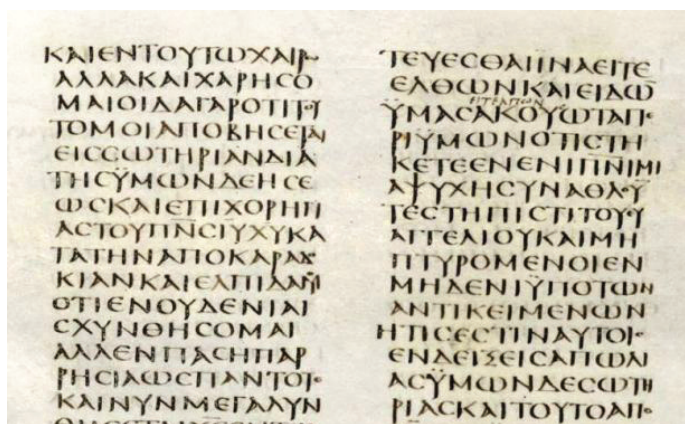 ΚΑΙΕΝΤΟΥΤΩΧΑΙΡ
ΑΛΛΑΚΑΙΧΑΡΗϹΟ
ΜΑΙΟΙΔΑΓΑΡΟΤΙΤΟΥ
ΤΟΜΟΙΑΠΟΒΗϹΕΤΑΙ
ΕΙϹϹΩΤΗΡΙΑΝΔΙΑ
ΤΗϹΫΜΩΝΔΕΗϹΕ
ΩϹΚΑΙΕΠΙΧΟΡΗΓΙ
ΑϹΤΟΥΠ̅Ν̅Ϲ̅Ι̅Υ̅Χ̅Υ̅ΚΑ
ΤΑΤΗΝΑΠΟΚΑΡΑΔΟ
ΚΙΑΝΚΑΙΕΛΠΙΔΑΜΟΥ
ΟΤΙΕΝΟΥΔΕΝΙΑΙ
ϹΧΥΝΘΗϹΟΜΑΙ
ΑΛΛΕΝΠΑϹΗΠΑΡ
ΡΗϹΙΑΩϹΠΑΝΤΟΤΕ
ΚΑΙΝΥΝΜΕΓΑΛΥΝ
ΤΕΥΕϹΘΑΙΪΝΑΕΙΤΕ
ΕΛΘΩΝΚΑΙΕΙΔΩ
ΕΙΤΕΑΠΩΝ
ΫΜΑϹΑΚΟΥΩΤΑΠΕ
ΡΙΫΜΩΝΟΤΙϹΤΗ
ΚΕΤΕΕΝΕΝΙΠ̅Ν̅Ι̅ΜΙ
ΑΨΥΧΗϹΥΝΑΘΛΟΥ
ΤΕϹΤΗΠΙϹΤΙΤΟΥΕΥ
ΑΓΓΕΛΙΟΥΚΑΙΜΗ
ΠΤΥΡΟΜΕΝΟΙΕΝ
ΜΗΔΕΝΙΫΠΟΤΩΝ
ΑΝΤΙΚΕΙΜΕΝΩΝ
ΗΤΙϹΕϹΤΙΝΑΥΤΟΙϹ
ΕΝΔΕΙΞΕΙϹΑΠΩΛΙ
ΑϹΫΜΩΝΔΕϹΩΤΗ
ΡΙΑϹΚΑΙΤΟΥΤΟΑΠΟ